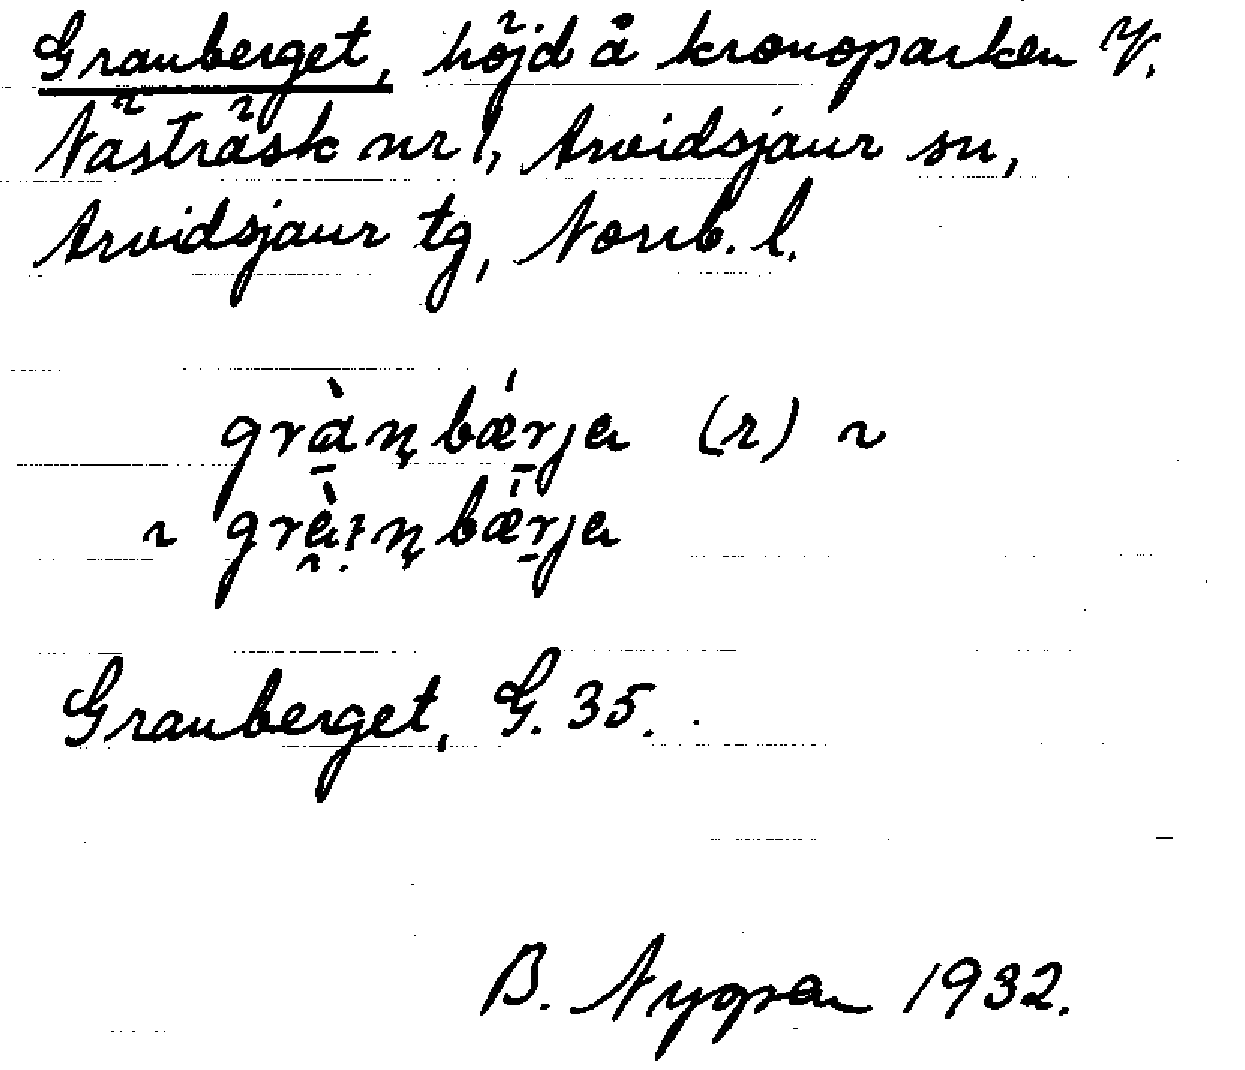 Granberget, höjd å kronoparken V.
Nästräsk nr 1, Arvidsjaur sn,
Arvidsjaur tg, Norrb. l.
grànbǽrja (r) ~
~ grànbǽrja
Granberget, G. 35.
B. Nygren 1932.